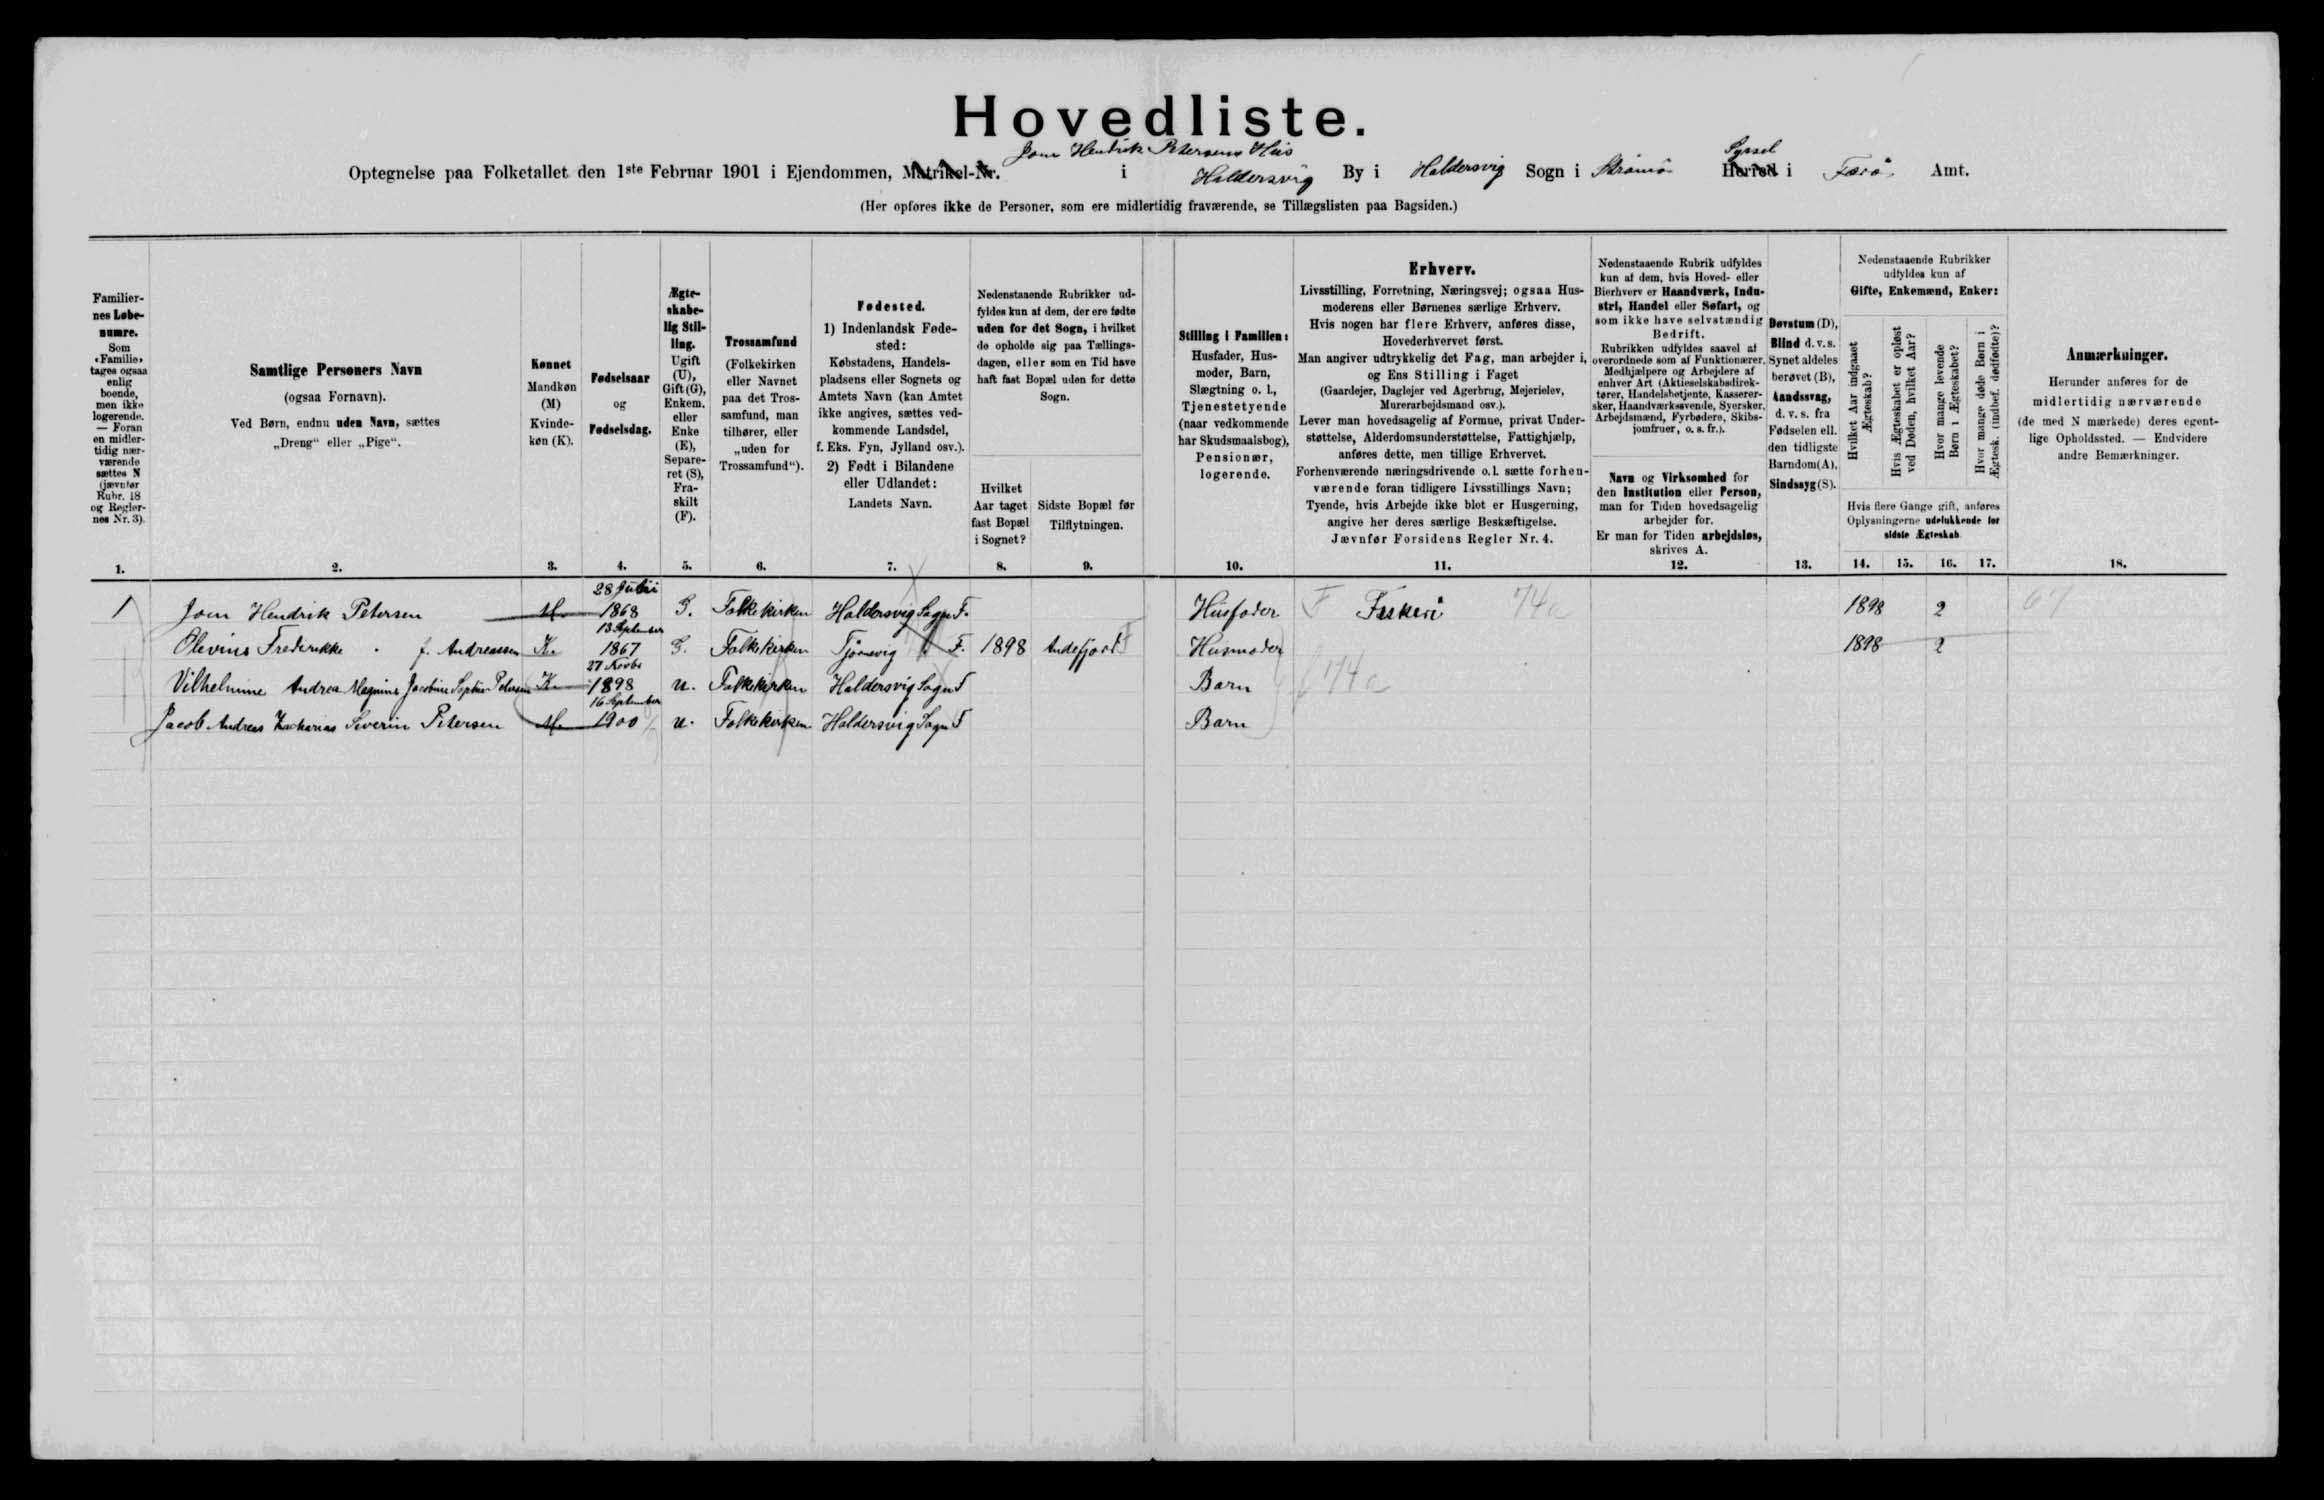 Hovedliste.
Joen Hendrik Petersens Hus
Syssel
Optegnelse paa Folketallet den 1ste Februar 1901 i Ejendommen, Matrikel-Nr. i Haldersvig By i Haldersvig Sogn i Strømø Herred i Færø Amt.
(Her opføres ikke de Personer, som ere midlertidig fraværende, se Tillægslisten paa Bagsiden.)
Familier-
nes Løbe-
numre.
Som
«Familie»
tages ogsaa
enlig
boende,
men ikke
logerende.
— Foran
en midler-
tidig nær-
værende
sættes N
(jævnfør
Rubr. 18
og Regler-
nes Nr. 3).
1.
Samtlige Personers Navn
(ogsaa Fornavn).
Ved Børn, endnu uden Navn, sættes
„Dreng“ eller „Pige“.
2.
Kønnet
Mandkøn
(M)
Kvinde-
køn (K).
3.
Fødselsaar
og
Fødselsdag.
4.
Ægte-
skabe-
lig Stil-
ling.
Ugift
(U),
Gift (G),
Enkem.
eller
Enke
(E),
Separe-
ret (S),
Fra-
skilt
(F).
5.
Trossamfund
(Folkekirken
eller Navnet
paa det Tros-
samfund, man
tilhører, eller
„uden for
Trossamfund“).
6.
Fødested.
1) Indenlandsk Føde-
sted:
Købstadens, Handels-
pladsens eller Sognets og
Amtets Navn (kan Amtet
ikke angives, sættes ved-
kommende Landsdel,
f. Eks. Fyn, Jylland osv.).
2) Født i Bilandene
eller Udlandet:
Landets Navn.
7.
Nedenstaaende Rubrikker ud-
fyldes kun af dem, der ere fødte
uden for det Sogn, i hvilket
de opholde sig paa Tællings-
dagen, eller som en Tid have
haft fast Bopæl uden for dette
Sogn.
Hvilket
Aar taget
fast Bopæl
i Sognet?
8.
Sidste Bopæl før
Tilflytningen.
9.
Stilling i Familien:
Husfader, Hus-
moder, Barn,
Slægtning o. l.,
Tjenestetyende
(naar vedkommende
har Skudsmaalsbog),
Pensionær,
logerende.
10.
Erhverv.
Livsstilling, Forretning, Næringsvej; ogsaa Hus-
moderens eller Børnenes særlige Erhverv.
Hvis nogen har flere Erhverv, anføres disse,
Hovederhvervet først.
Man angiver udtrykkelig det Fag, man arbejder i,
og Ens Stilling i Faget
(Gaardejer, Daglejer ved Agerbrug, Mejerielev,
Murerarbejdsmand osv.).
Lever man hovedsagelig af Formue, privat Under-
støttelse, Alderdomsunderstøttelse, Fattighjælp,
anføres dette, men tillige Erhvervet.
Forhenværende næringsdrivende o. l. sætte forhen-
værende foran tidligere Livsstillings Navn;
Tyende, hvis Arbejde ikke blot er Husgerning,
angive her deres særlige Beskæftigelse.
Jævnfør Forsidens Regler Nr. 4.
11.
Nedenstaaende Rubrik udfyldes
kun af dem, hvis Hoved- eller
Bierhverv er Haandværk, Indu-
stri, Handel eller Søfart, og
som ikke have selvstændig
Bedrift.
Rubrikken udfyldes saavel af
overordnede som af Funktionærer,
Medhjælpere og Arbejdere af
enhver Art (Aktieselskabsdirek-
tører, Handelsbetjente, Kasserer-
sker, Haandværkssvende, Syersker,
Arbejdsmænd, Fyrbødere, Skibs-
jomfruer, o. s. fr.).
Navn og Virksomhed for
den Institution eller Person,
man for Tiden hovedsagelig
arbejder for.
Er man for Tiden arbejdsløs,
skrives A.
12.
Døvstum (D),
Blind d. v. s.
Synet aldeles
berøvet (B),
Aandssvag,
d. v. s. fra
Fødselen ell.
den tidligste
Barndom (A),
Sindssyg (S).
13.
Nedenstaaende Rubrikker
udfyldes kun af
Gifte, Enkemænd, Enker:
Hvilket Aar indgaaet
Ægteskab?
Hvis Ægteskabet er opløst
ved Døden, hvilket Aar?
Hvor mange levende
Børn i Ægteskabet?
Hvor mange døde Børn i
Ægtesk. (indbef. dødfødte)?
Hvis flere Gange gift, anføres
Oplysningerne udelukkende for
sidste Ægteskab.
14. 15. 16. 17.
Anmærkninger.
Herunder anføres for de
midlertidig nærværende
(de med N mærkede) deres egent-
lige Opholdssted. — Endvidere
andre Bemærkninger.
18.
1 Joen Hendrik Petersen M. 28 Juli 1868 G. Folkekirken Haldersvig Sogn F. Husfader F Fiskeri 74a 1898 2 67
Olevine Frederikke f. Andreassen K. 13 September 1867 G. Folkekirken Tjørnevig F. 1898 Andefjord F Husmoder 1898 2
Vilhelmine Andrea Magnine Jacobine Sophie Petersen K. 27 Novbr 1898 U. Folkekirken Haldersvig Sogn F Barn 74a
Jacob Andreas Zacharias Severin Petersen M. 16 September 1900 U. Folkekirken Haldersvig Sogn F Barn